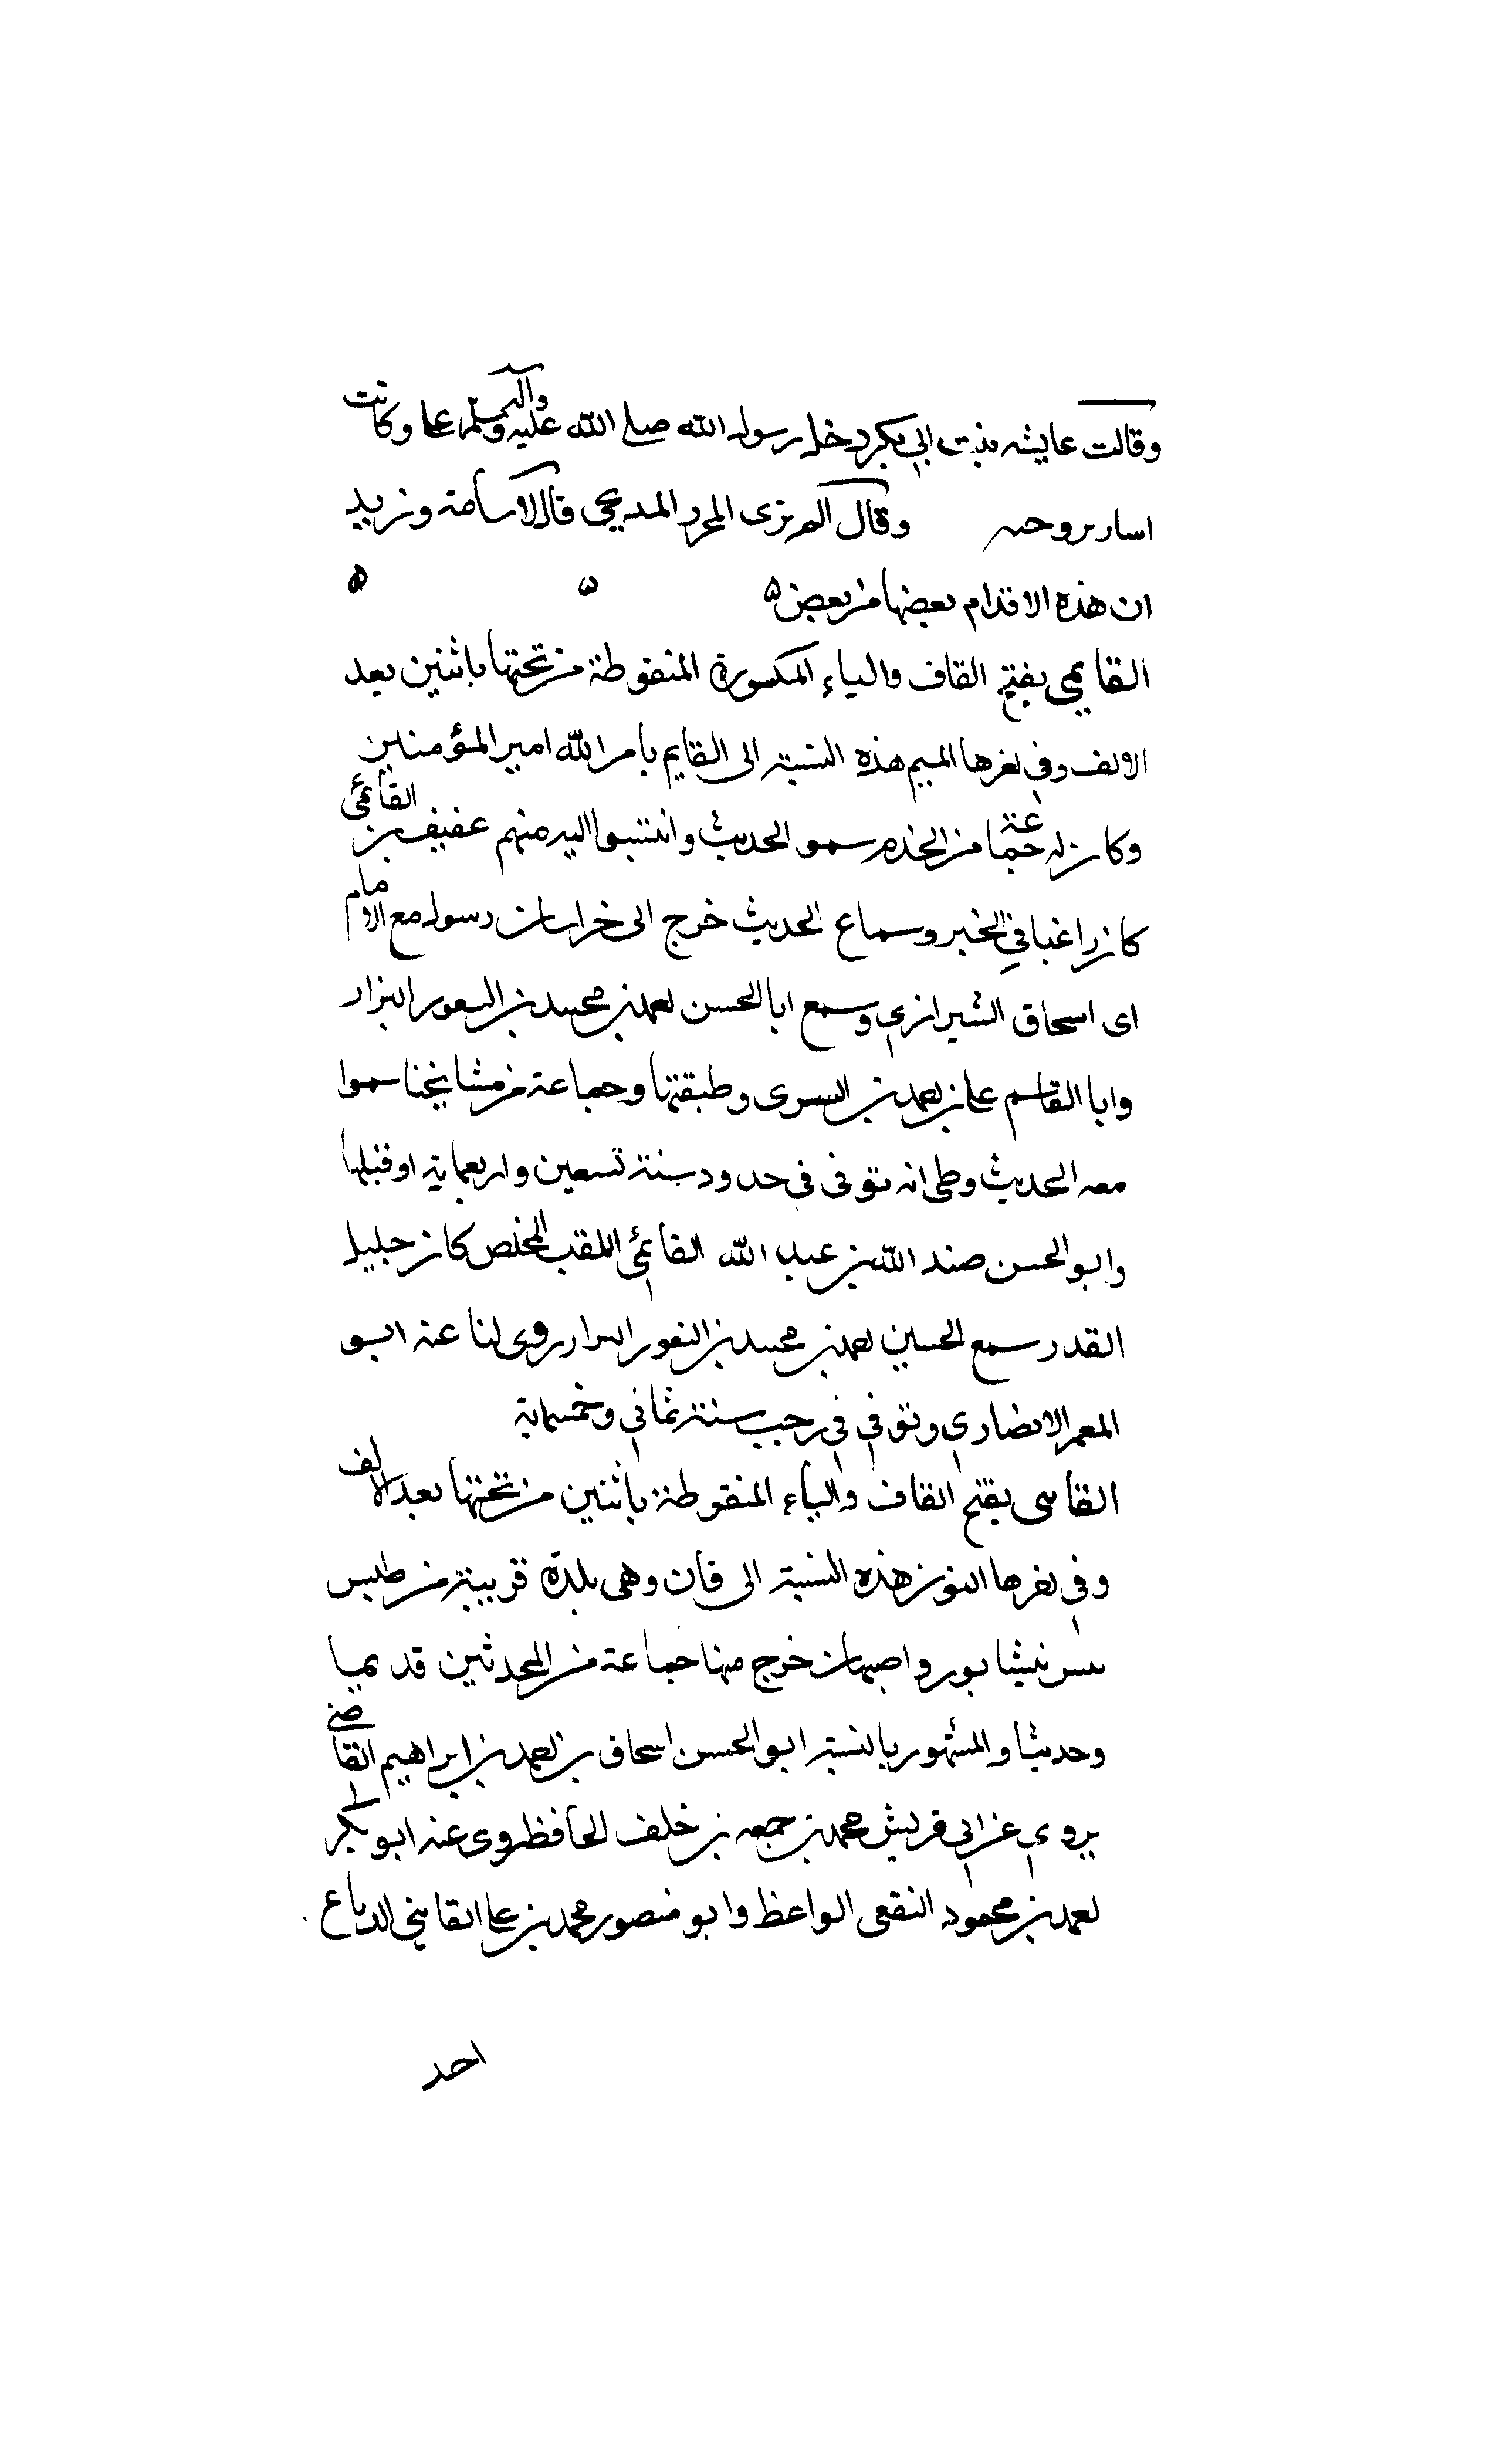 وقالت عايشه بنت ابي بكر دخل رسول الله صلى الله عليه وآله وسلم علي وكانت
اسارير وجهه وقال الم تري المجزز المدلجي قال لاسامة وزيد
ان هذه الاقدام بعضها من بعض ه ه ه
القايمي بفتح القاف والياء المكسورة المنقوطة من تحتها باثنين بعد
الالف وفي اخرها الميم هذه النسبة الى القايم بامر الله امير المؤمنين
وكان له جماعة من الخدم سمو الحديث وانتسبوا اليه منهم عفيف بن القائمي
كان راغبا في الخير وسماع الحديث خرج الى خراسان رسولا مع الامام
ابى اسحاق الشيرازي وسمع ابا الحسن احمد بن محمد بن النعور البزار
وابا القاسم علي بن احمد بن البسرى وطبقتها وجماعة من مشايخنا سموا
معه الحديث وظني انه توفى فى حدود سنة تسعين واربعماية او قبلها
وابو الحسن صند الله بن عبد الله القائمي اللقب المخلص كان جليل
القدر سمع الحسين احمد بن محمد بن النفور البزار روى لنا عنه ابو
المعمر الانصاري وتوفي في رجب سنة ثماني وخمسماية
القايني بفتح القاف والياء المنقوطة باثنين من تحتها بعد الالف
وفي اخرها النون هذه النسبة الى قان وهى بلدة قريبة من طبس
بين نيشابور واصبهان خرج منها جماعة من المحدثين قديما
وحديثا والمشهور بالنسبة ابو الحسن اسحاق بن احمد بن ابراهيم القاضي
يروي عن ابي قريش محمد بن جمعه بن خلف الحافظ روى عنه ابو بكر
احمد بن محمود الثقفى الواعظ وابو منصور محمد بن علي القايني الدباغ
احد